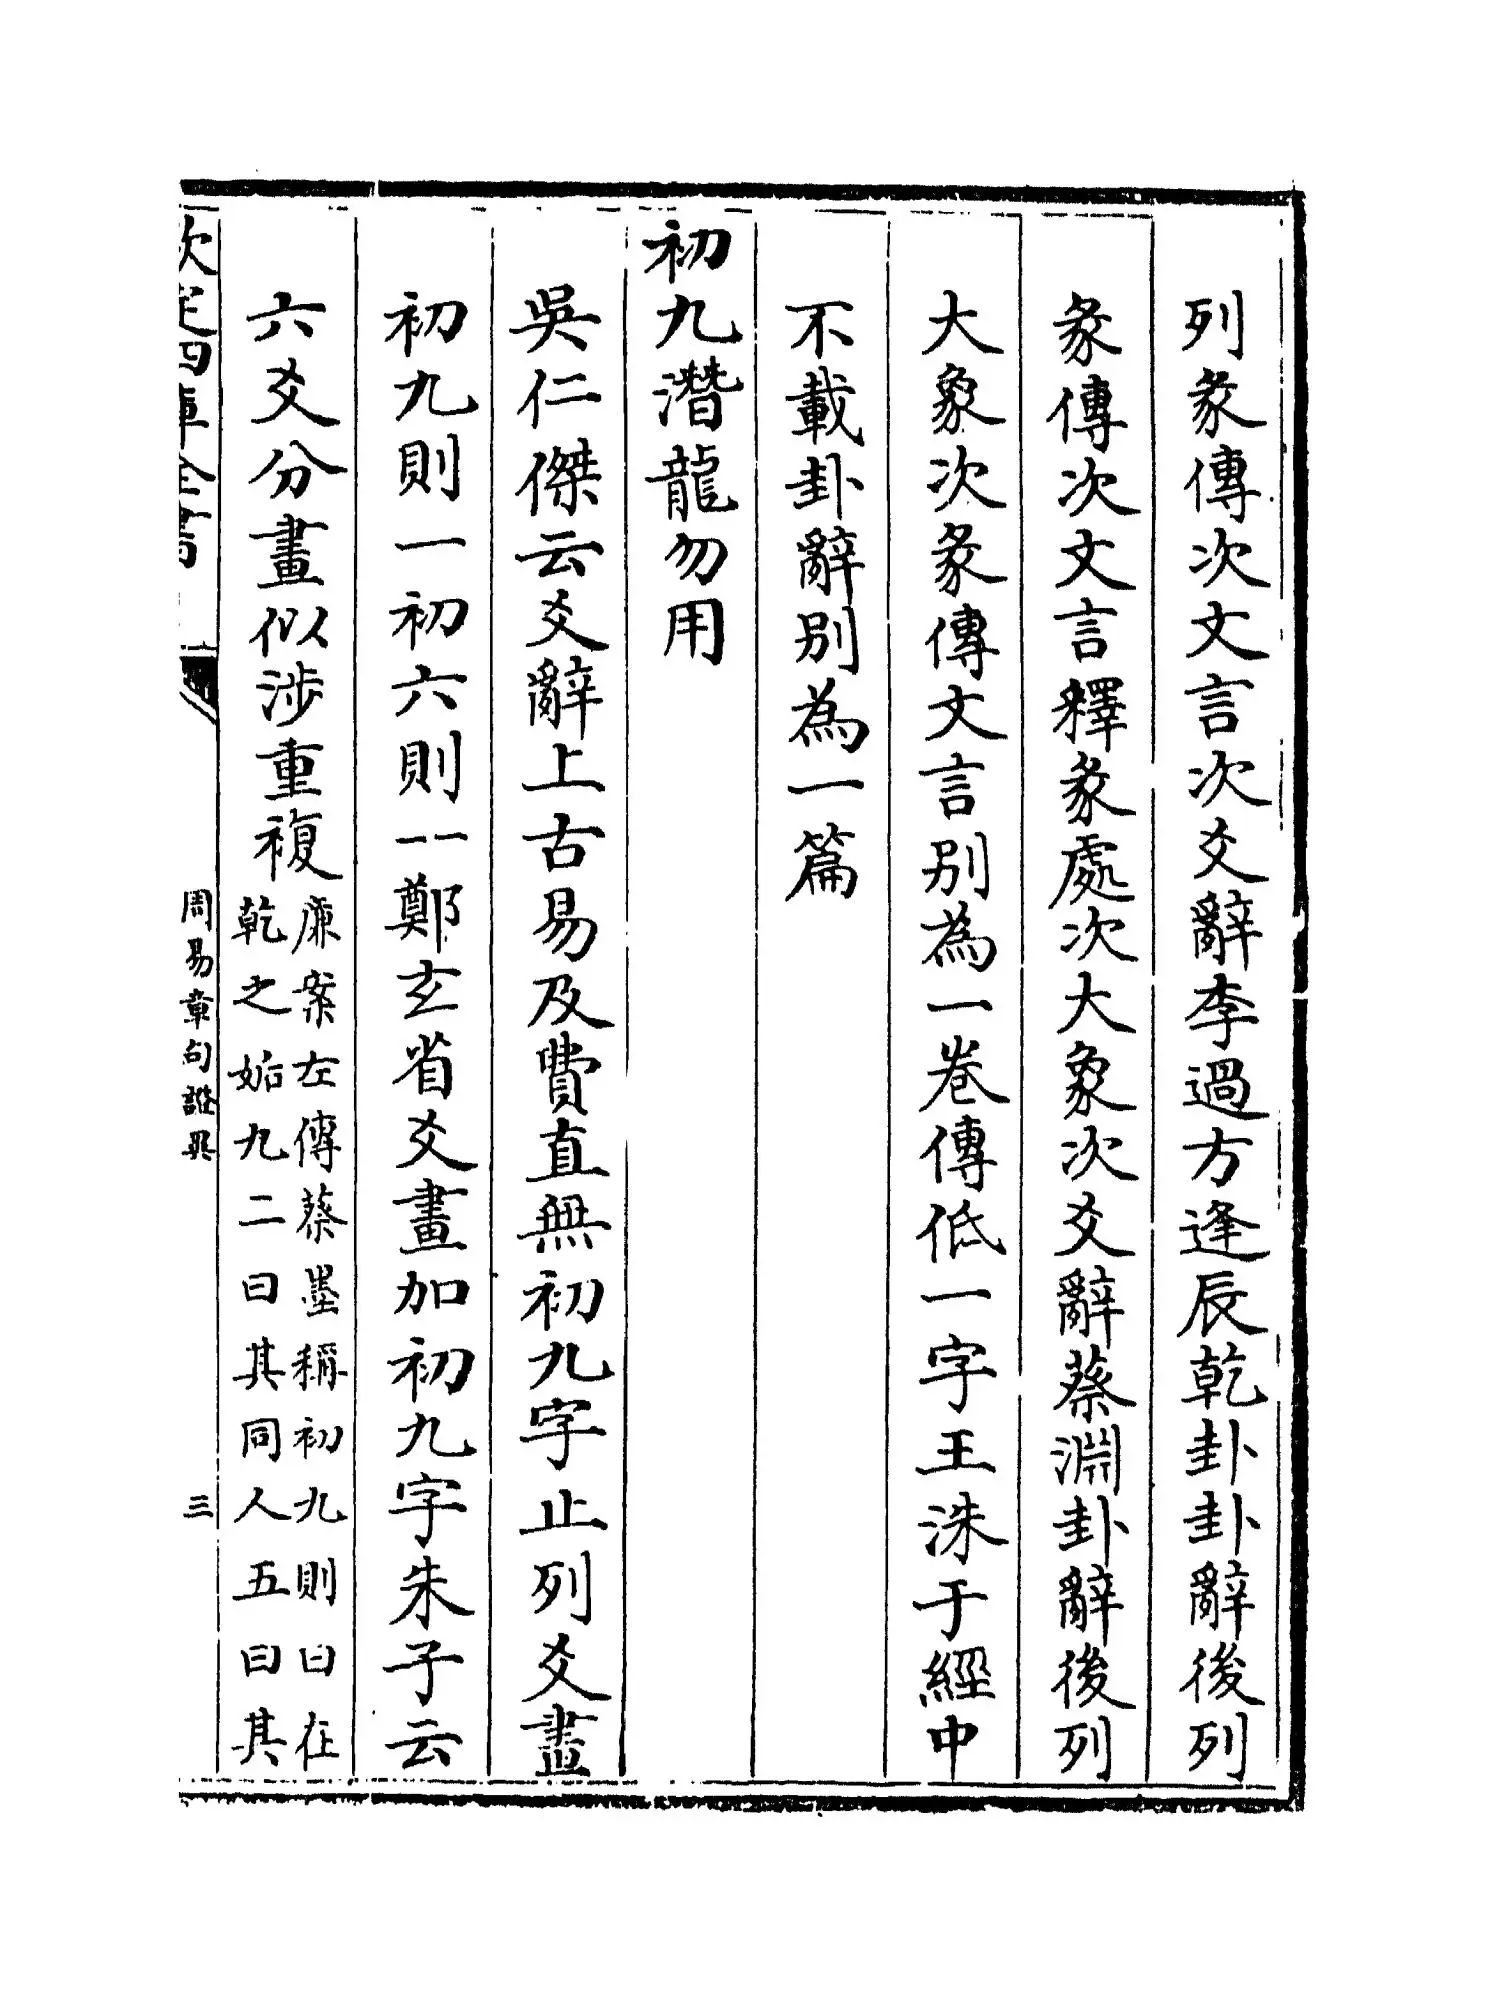 列彖傳次文言次爻辭李過方逢辰乾卦卦辭後列
彖傳次文言釋彖處次大象次爻辭蔡淵卦辭後列
大象次彖傳文言別為一卷傳低一字王洙于經中
不載卦辭別為一篇
初九潛龍勿用
吳仁傑云爻辭上古易及費直無初九字止列爻畫
初九則一初六則⚋鄭玄省爻畫加初九字朱子云
六爻分畫似涉重複
廉案左傳蔡墨稱初九則曰在
乾之姤九二曰其同人五曰其
欽定四庫全書
周易章句證異
三